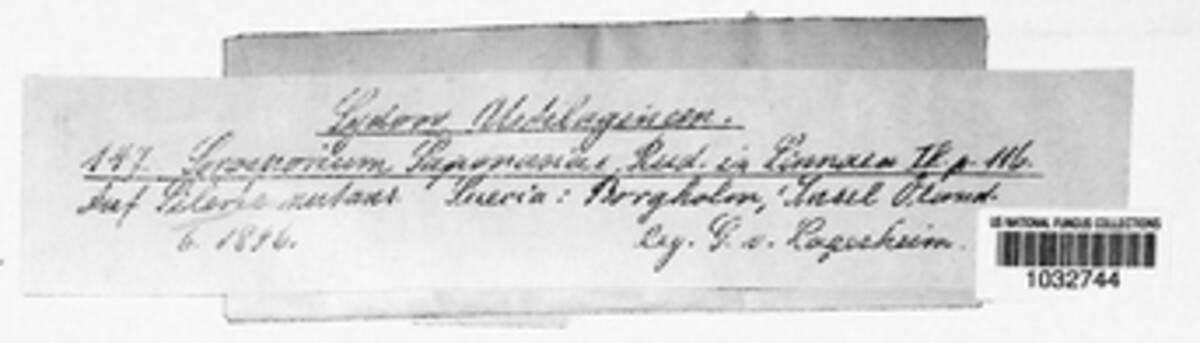 Sydow, Ustilagineen.
147. Sorosporium Saponariae Rud. in Linnaea IV p. 116.
Auf Silene nutans Suecia: Borgholm, Insel Öland.
6. 1896. leg. G. v. Lagerheim.
US NATIONAL FUNGUS COLLECTIONS
1032744